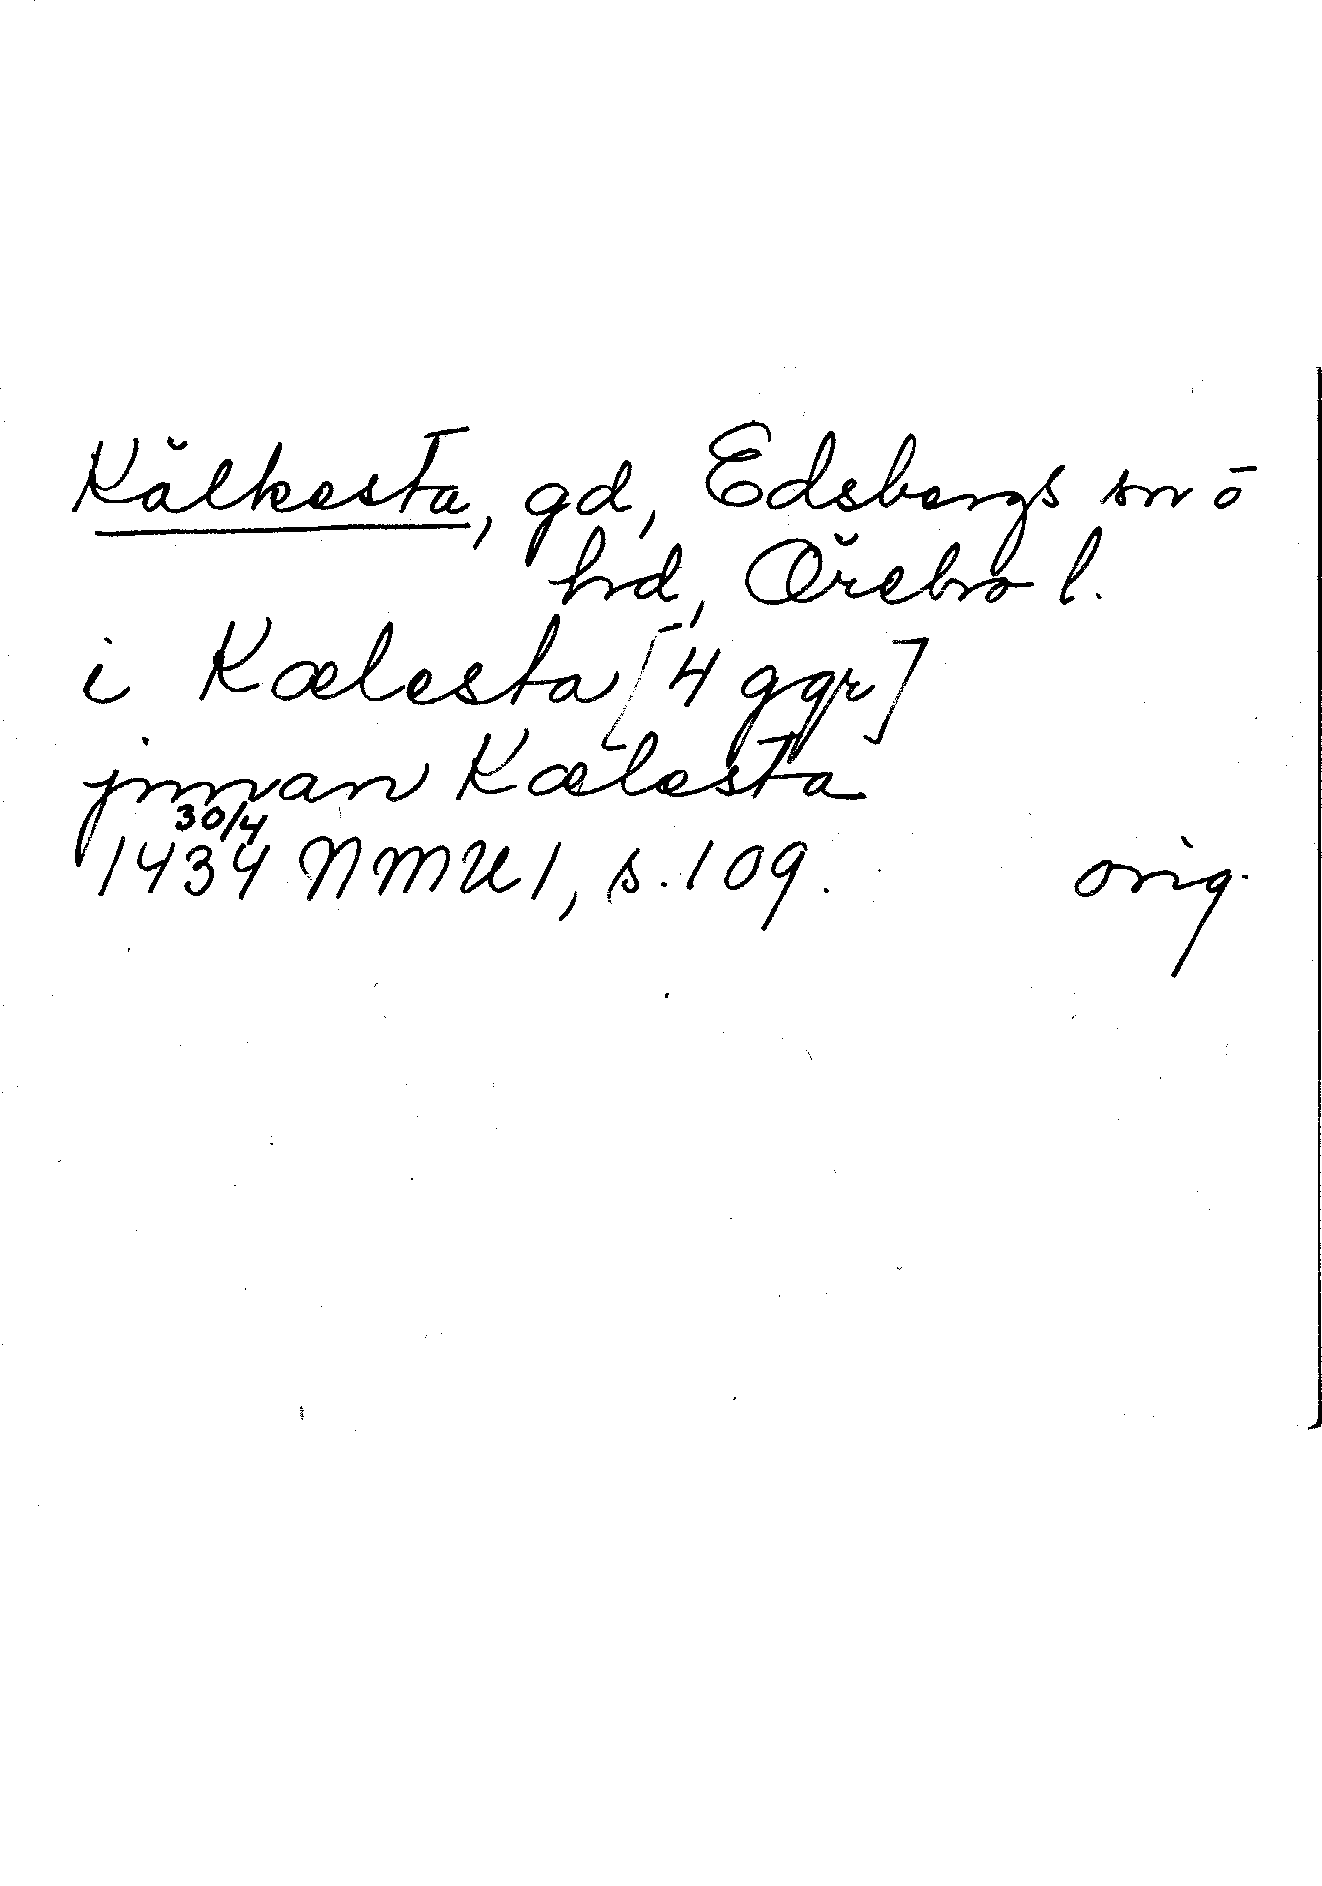 Kälkesta, gd, Edsbergs sn o
hd, Örebro l.
i Kælesta [4 ggr]
jnnan Kælesta
30/4
1434 NMU1, s. 109. orig.